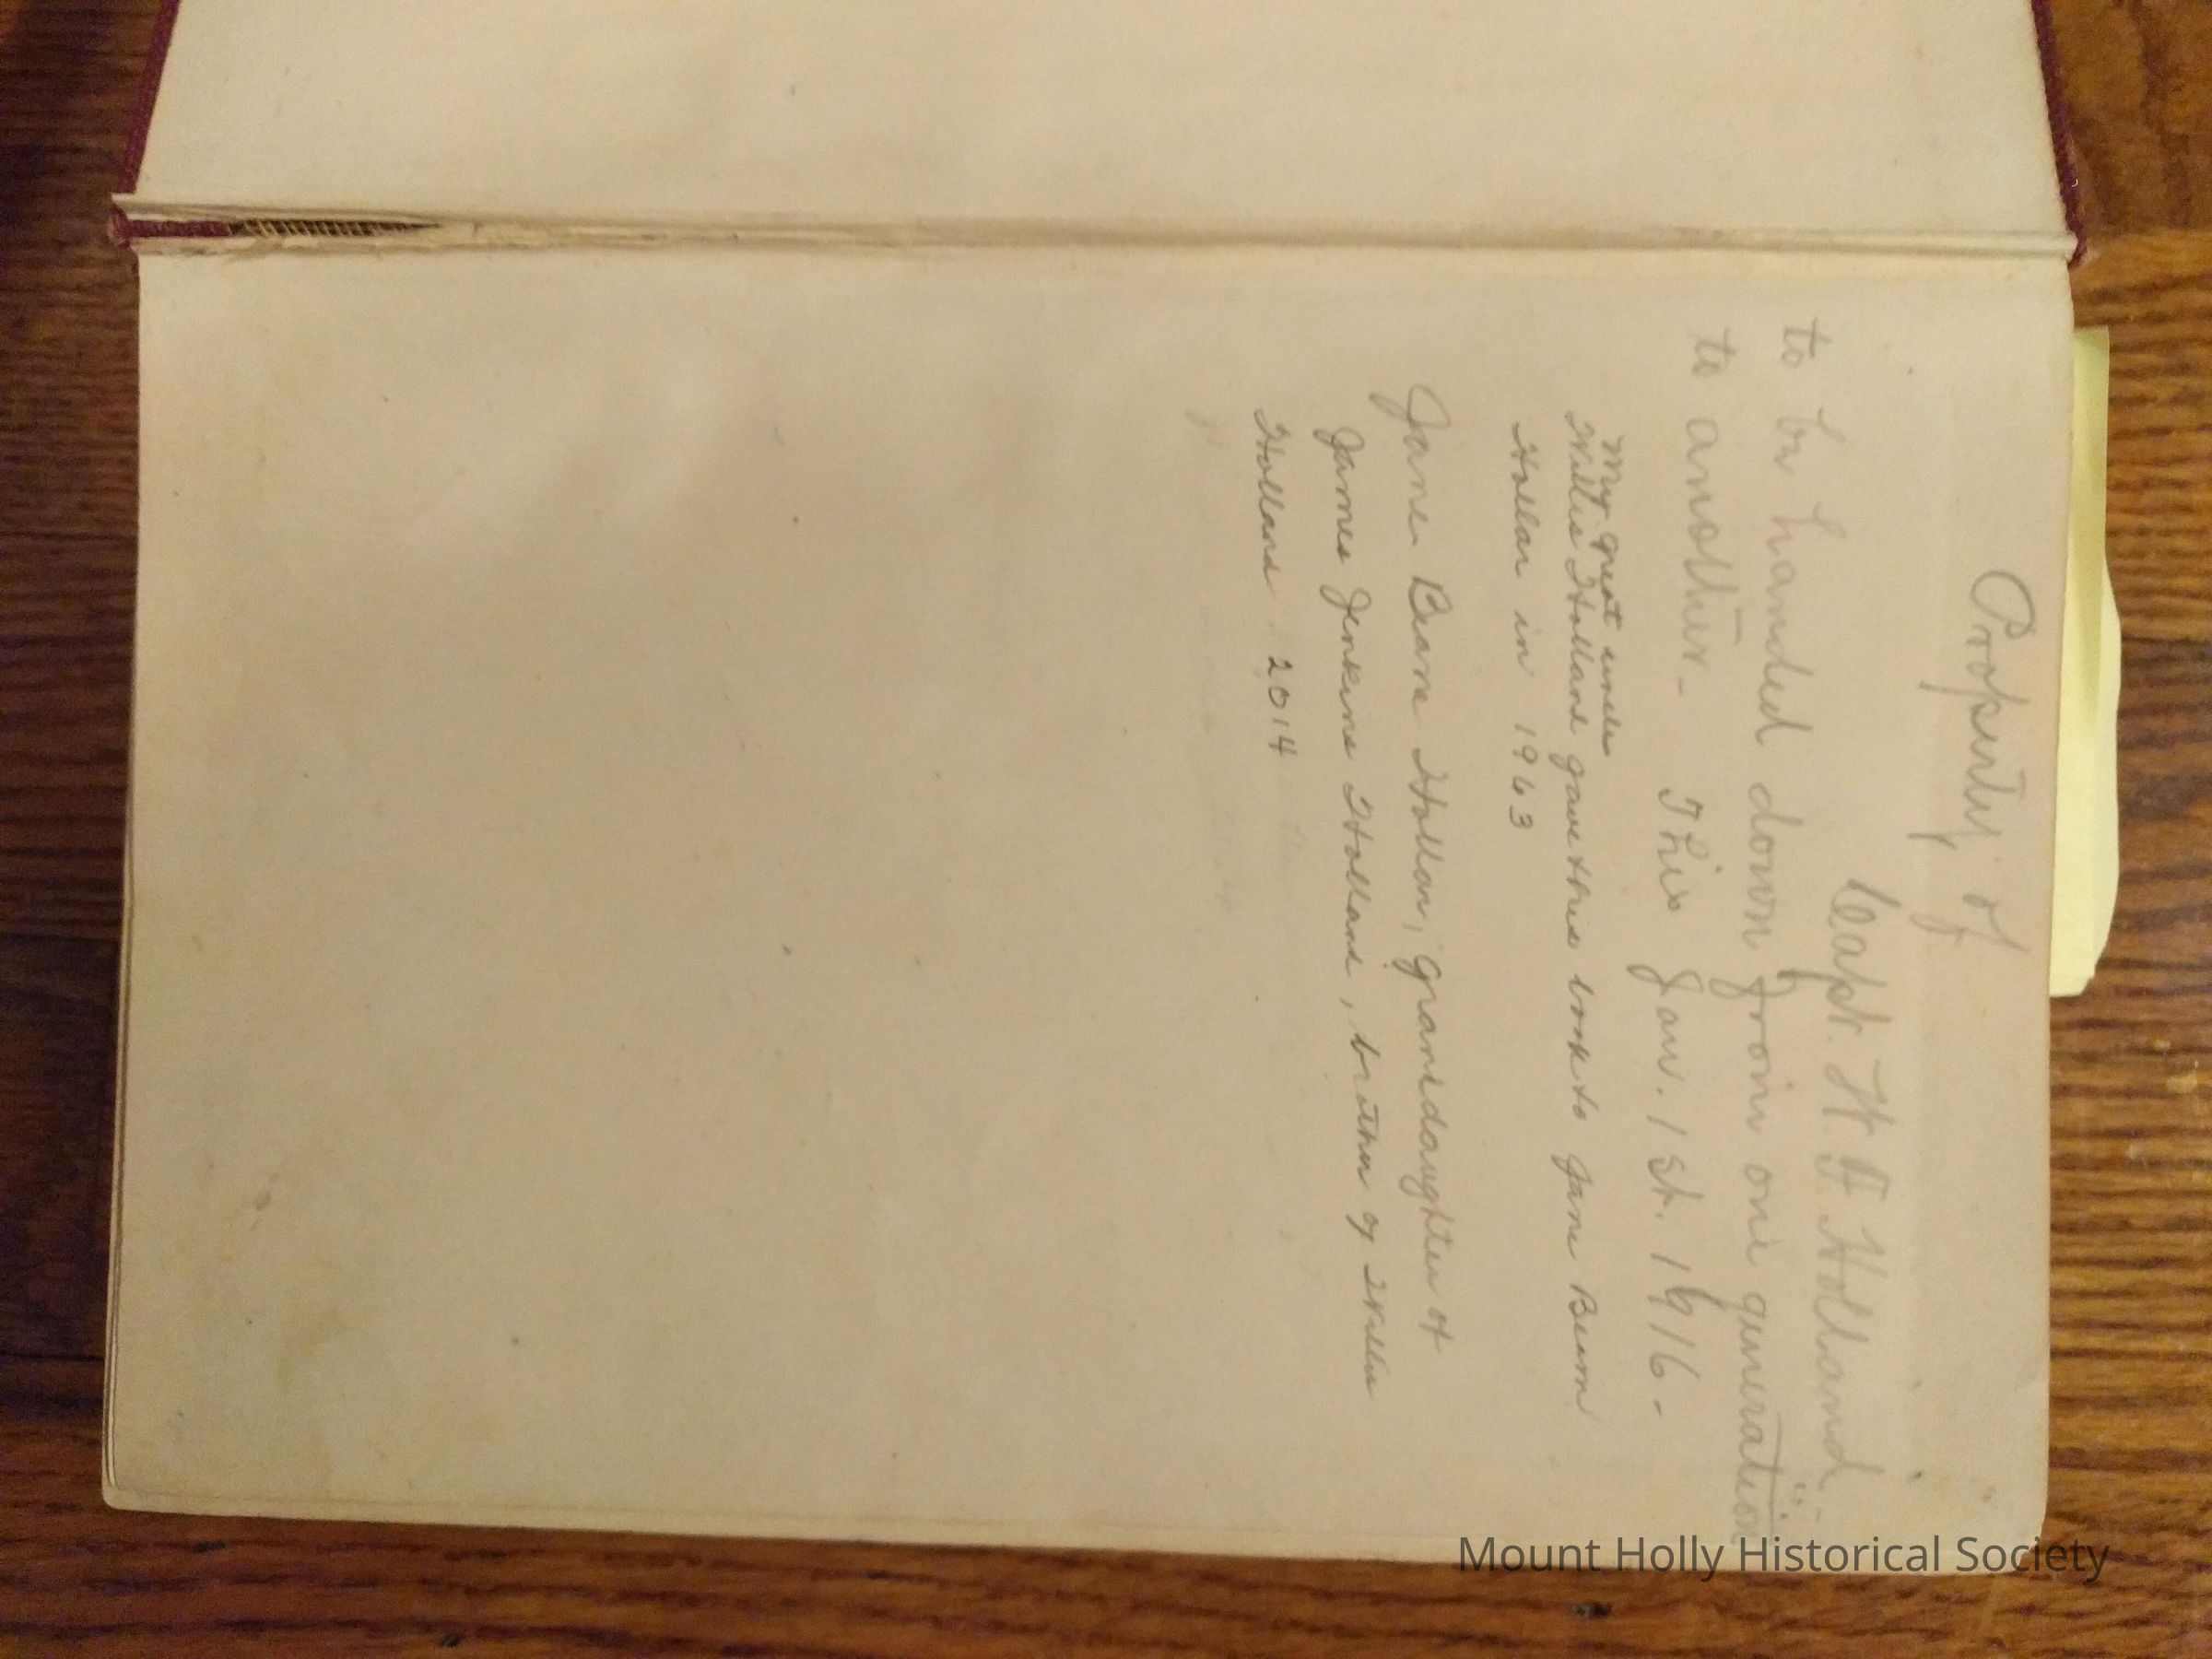 Property of
Capt. W. T. Holland -
to be handed down from one generation
to another - This Jan. 1st. 1916 -
My great uncle
Willis Holland gave this book to Jane Beam
Hollar in 1963
Jane Beam Hollar, granddaughter of
James Jenkins Holland, brother of Willis
Holland 2014
Mount Holly Historical Society